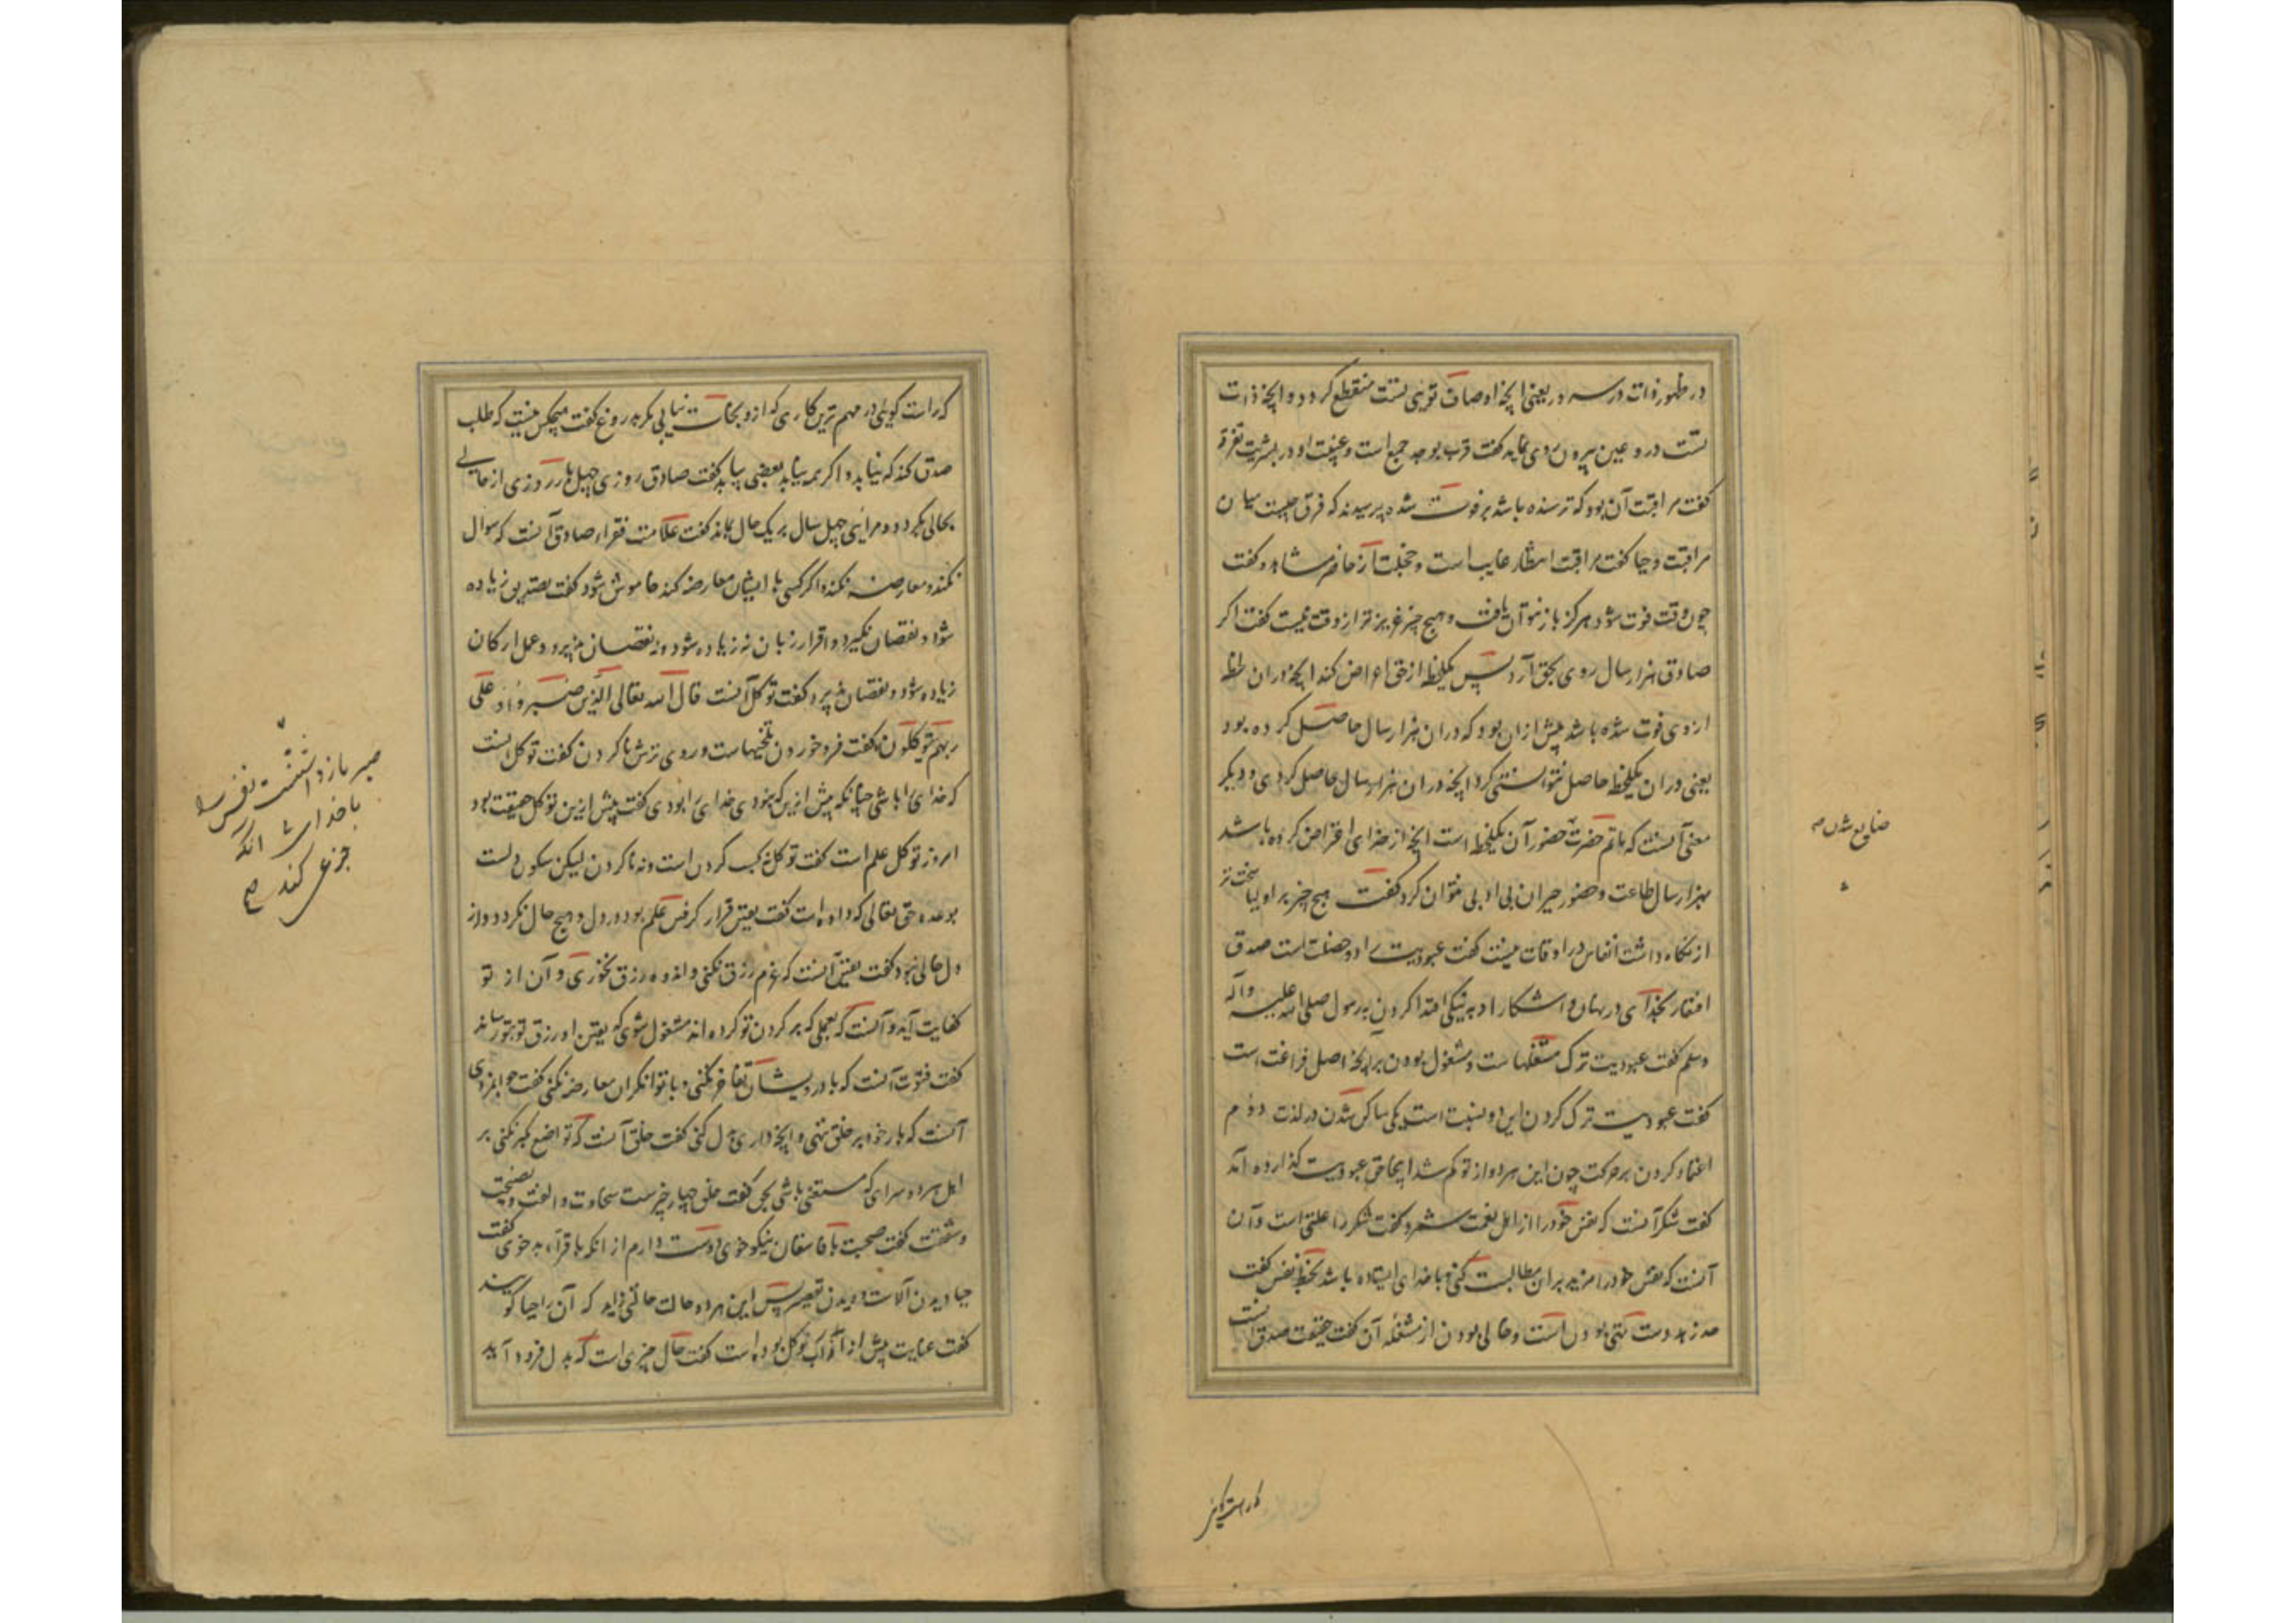 در ظهور ذات در رسد و یعنی آنچه اوصاف توئی تست منقطع گردد و آنچه ذات
تست در و عین بیرون روی نماید گفت قرب بوجد جمع است و غیبت او در بشریت تفرقه
گفت مراقبت آن بود که ترسنده باشد برفوت شده پرسیدند که فرق چیست میان
مراقبت و حیا گفت مراقبت انتظار غایب است و خجلت از حاضر مشاهد و گفت
چون وقت فوت شود هرگز باز نتوان یافت و هیچ چیز عزیزتر از وقت نیست گفت اگر
صادق هزار سال روی بحق آرد پس یکلحظه از حق اعراض کند آنچه در ان لحظه
از وی فوت شده باشد بیش ازان بود که دران هزار سال حاصل کرده بود
یعنی دران یکلحظه حاصل نتوانستی کرد آنچه دران هزار سال حاصل کردی و دیگر
معنی آنست که ماتم حضرت حضور آن یکلحظه است آنچه از خدای اعراض کرده باشد
بهزار سال طاعت و حضور جبران بی ادبی نتوان کرد گفت هیچ چیز بر اولیا سخت تر
از نگاه داشت انفاس در اوقات نیست گفت عبودیت را دو خصلت است صدق
افتقار بخدای در نهان و اشکارا و به نیکی اقتدا کردن به رسول صلی الله علیه وآله
وسلم گفت عبودیت ترک مشغلها ست و مشغول بودن بر آنچه اصل فراغت است
گفت عبودیت ترک کردن این دو نسبت است یکی ساکن شدن در لذت دوم
اعتماد کردن بر حرکت چون این هر دو از تو گم شد اینجا حق عبودیت گذارده آمد
گفت شکر آنست که نفس خود را از اهل نعمت نشمرد و گفت شکر را علتی است و آن
آنست که نفس خود را مزید بران مطالبت کنی و با خدای ایستاده باشد بحظ نفس گفت
حد زهد دست تهی بودن است و خالی بودن از مشغله آن گفت حقیقت صدق آنست
که راست گوئی
ضایع شدن
که راست گویی در مهم ترین کاری که ازو نجات نیابی مگر به دروغ گفت هیچکس نیست که طلب
صدق کند که نیابد و اگر همه نیابد بعضی بیابد گفت صادق روزی چهل بار از حالی
بحالی بگردد و مرائی چهل سال بر یک حال بماند گفت علامت فقراء صادق آنست که سوال
نکنند و معارضه نکنند و اگر کسی با ایشان معارضه کند خاموش شود گفت تصدیق زیاده
شود و نقصان نگیرد و اقرار زبان نه زیاده شود و نه نقصان پذیرد و عمل ارکان
زیاده شود و نقصان پذیرد گفت توکل آنست قال الله تعالی الذین صبروا و علی
ربهم یتوکلون گفت فرو خوردن تلخیهاست و روی ترش ناکردن گفت توکل آنست
که خدای را باشی چنانکه پیش ازین که نبودی خدای را بودی گفت پیش ازین توکل حقیقت بود
امروز توکل علم است گفت توکل نه کسب کردن است و نه ناکردن لیکن سکون دلست
بوعده حق تعالی که داده است گفت یقین قرار گرفتن علم بود در دل و هیچ حال نگردد و از
دل خالی نبود گفت یقین آنست که غم رزق نکنی و اندوه رزق نخوری و آن از تو
کفایت آید و آنست که بعملی که بر گردن تو کرده اند مشغول شوی که یقین او رزق تو بتو رساند
گفت فتوت آنست که با درویشان تفاخر نکنی و با توانگران معارضه نکنی گفت جوانمردی
آنست که بار خود بر خلق ننهی و آنچه داری بذل کنی گفت خلق آنست که تواضع کبر نکنی بر
اهل هر دو سرای که مستغنی باشی بحق گفت خلق چهار چیز ست سخاوت و الفت و نصیحت
و شفقت گفت صحبت با فاسقان نیکو خوی دوست دارم از انکه با قرآء بد خوی گفت
حیا دیدن آلاست و دیدن تقصیر پس این هر دو حالت حالتی زاید که آن را حیا گویند
گفت عنایت پیش از آب و گل بوده است گفت حال چیزی است که بدل فرود آید
صبر باز داشتنست نفس را
با خدای بی آنکه
جزع کند صح